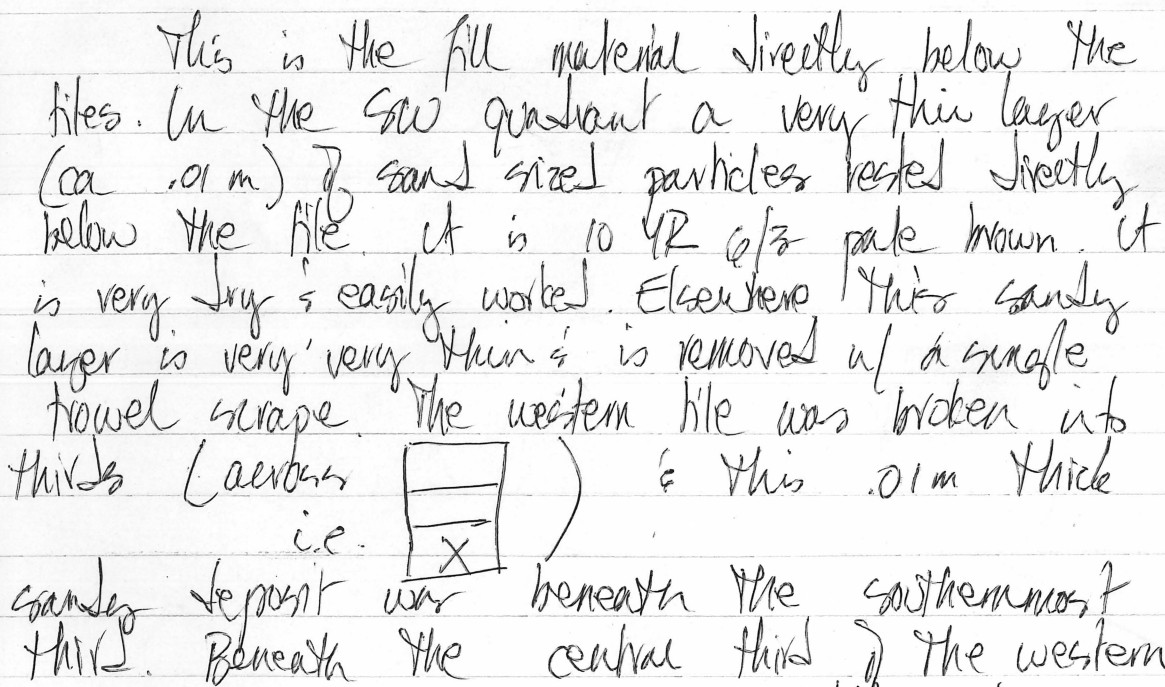 This is the fill material directly below the
tiles. In the SW quadrant a very thin layer
(ca .01 m) of sand sized particles rested directly
below the tile. It is 10 YR 6/3 pale brown. It
is very dry & easily worked. Elsewhere this sandy
layer is very very thin & is removed w/ a single
trowel scrape. The western tile was broken into
thirds (across ) & this .01m thick
i.e. X
sandy deposit was beneath the southernmost
third. Beneath the central third of the western